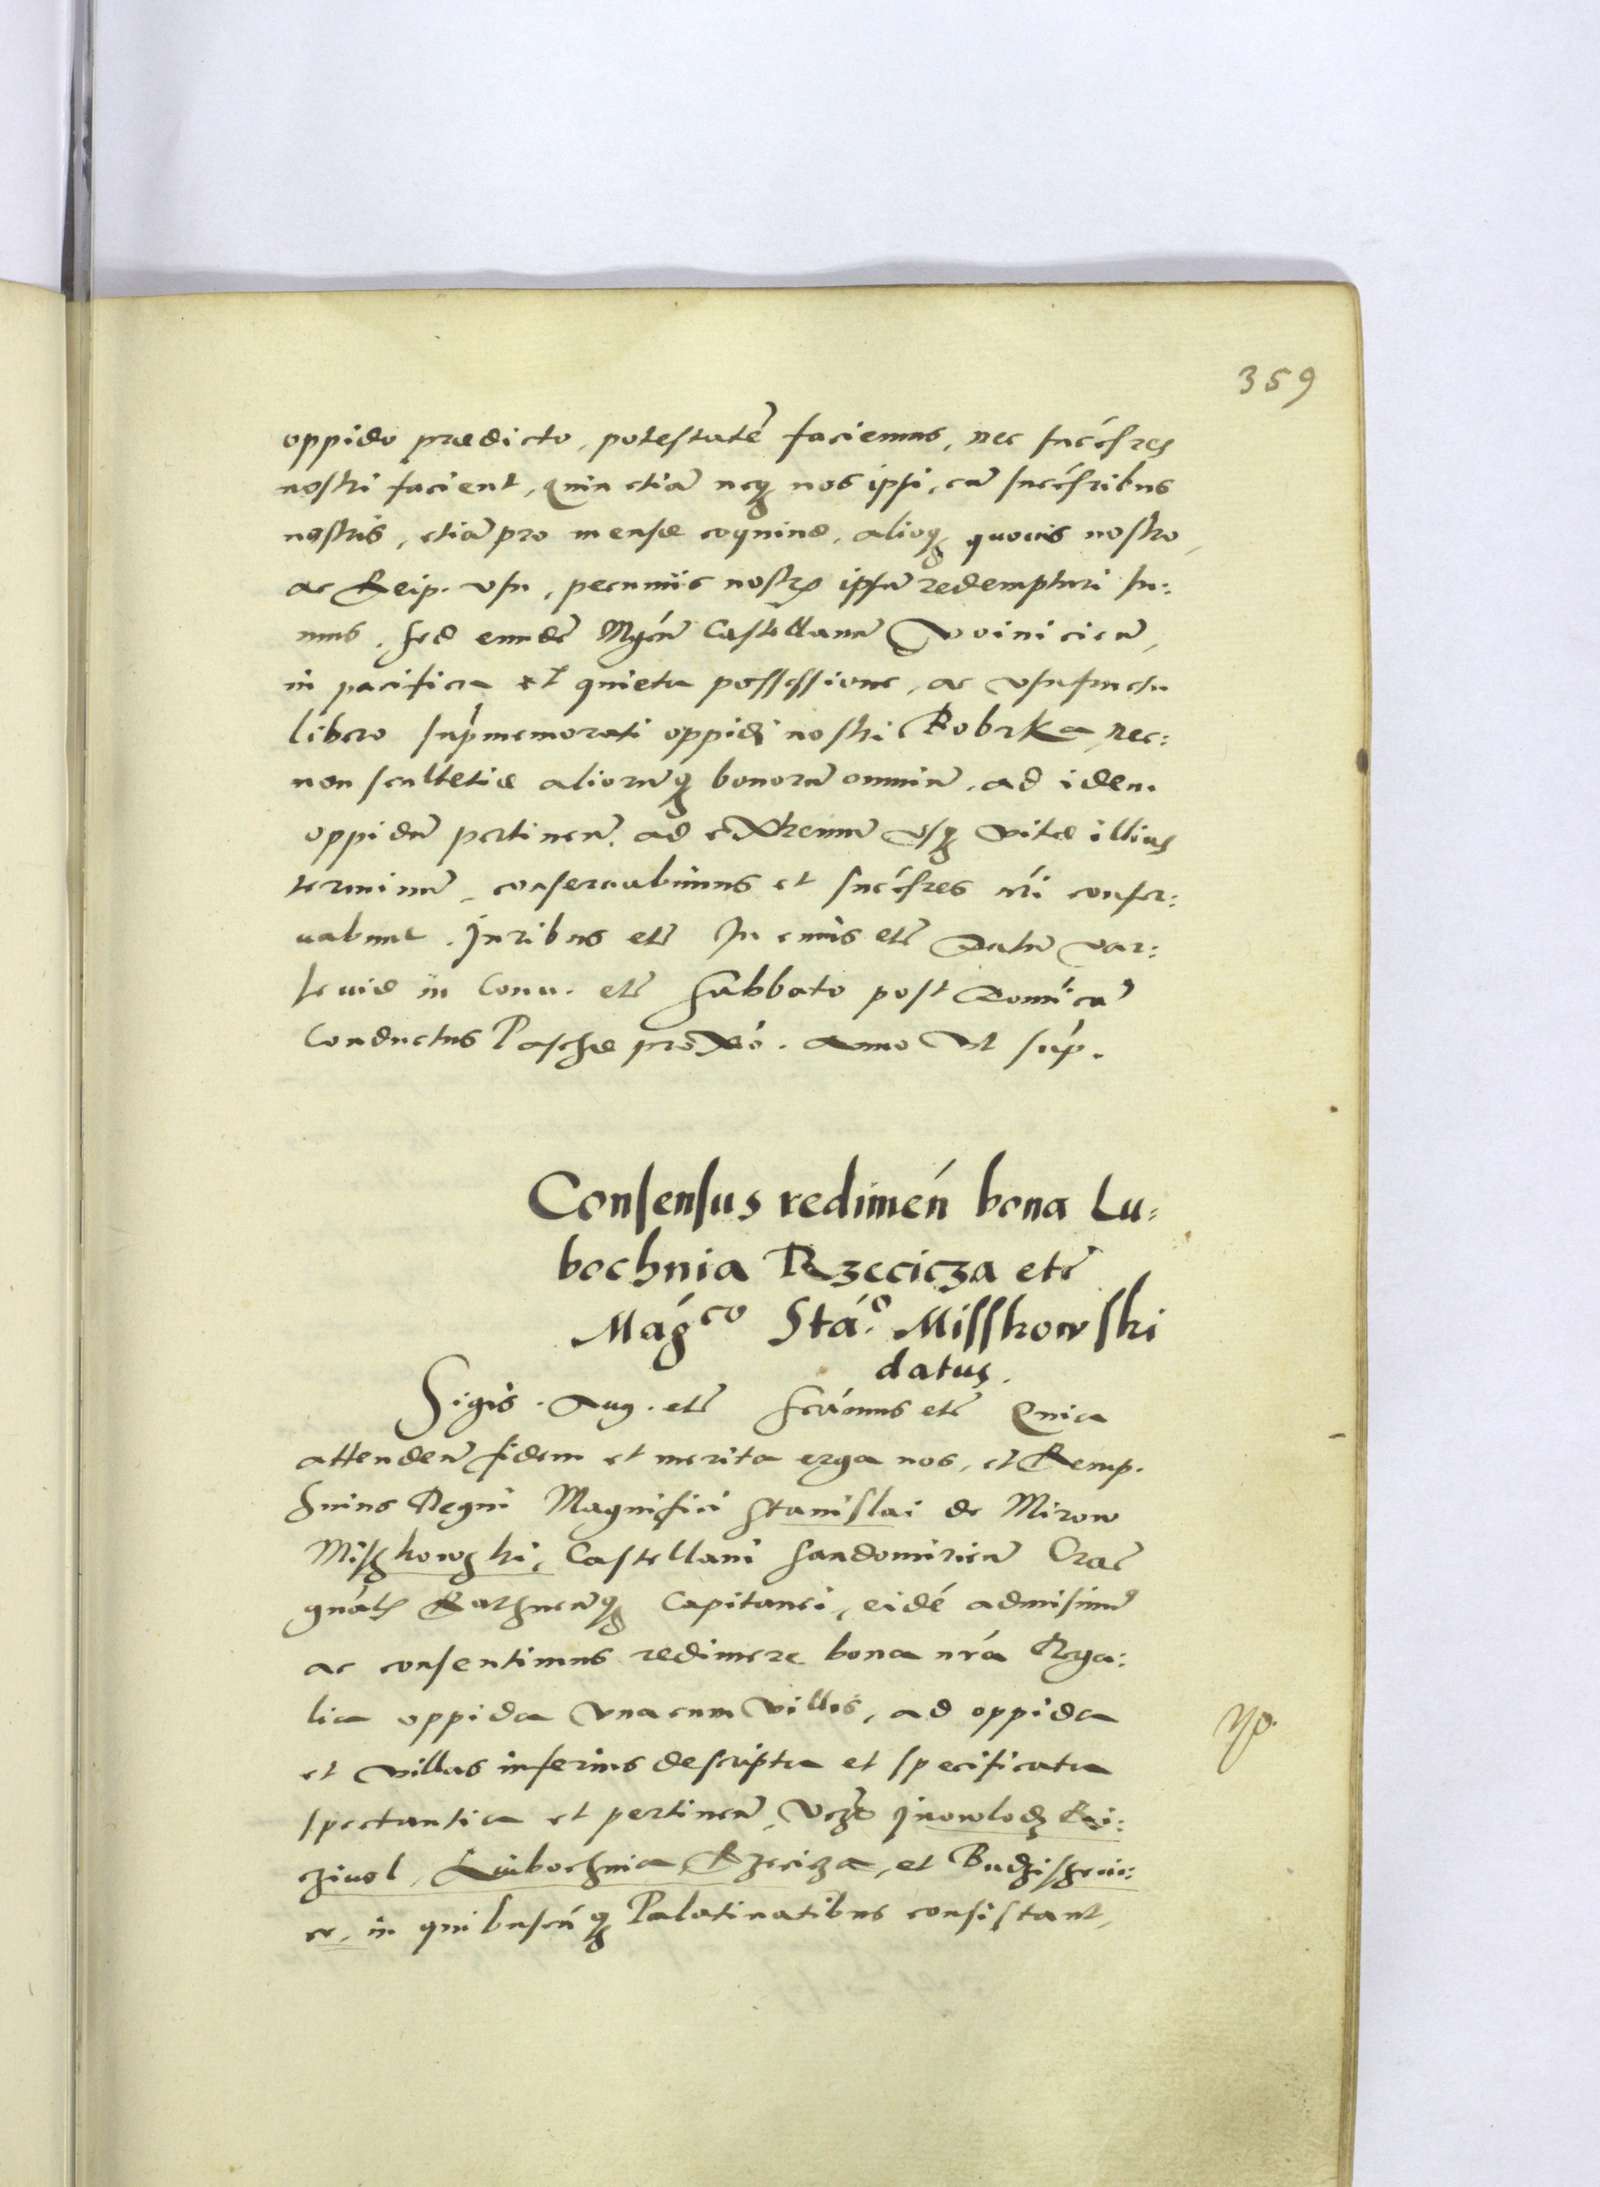 359
oppido prædicto, potestatē faciemus, nec succēs̄res
nostri facient, Quin etiā neq3 nos ipsi, cū succēs̄ribus
nostris, etiā pro mensæ coquinæ, alioq3 quovis nostro,
ac Reip. usu, pecuniis nostris ipsū redempturi su:
mus. Sed eundē Mgcū Castellanū Voiniciēn,
in pacifica et quieta possessione, ac usufructu
libero sup̄memorati oppidi nostri Bobrka, nec:
non scultetiæ aliorūq3 bonorū omniū, ad idem
oppidū pertineñ. ad extremū usq3 vitæ illius
terminū, conservabimus et succēs̄res nr̄i conser:
vabunt. Juribus etc̄ In cuius etc̄ Datū Var:
seviæ in Conv. etc̄ Sabbato post Dominicā
Conductus Paschæ pro⁠xō. Anno Ut sup̄.
Consensus redimeń bona Lu:
bochnia Rzecicza etc̄
Mag̃co Stá.o Misskowski
datus.
Sigis. Aug. etc̄ Scrīmus etc̄ Quia
attendeñ fidem et merita erga nos, et Remp.
huius Regni Magnifici Stanislai de Mirow
Mischkowski, Castellani Sandomirieñ Mari
Ratzneñq3 Capitanei, eidē admisim9
ac consentimus redimere bona nr̄a Rega:
lia oppida una cum villis, ad oppida
et villas inferius descripta et specificata
spectantia et pertineñ, Inowlodz Rai:
cziwol, Lubochnia Rzeczicza, et Budziszewi:
ce, in quibuscūq3 Palatinatibus consistant,